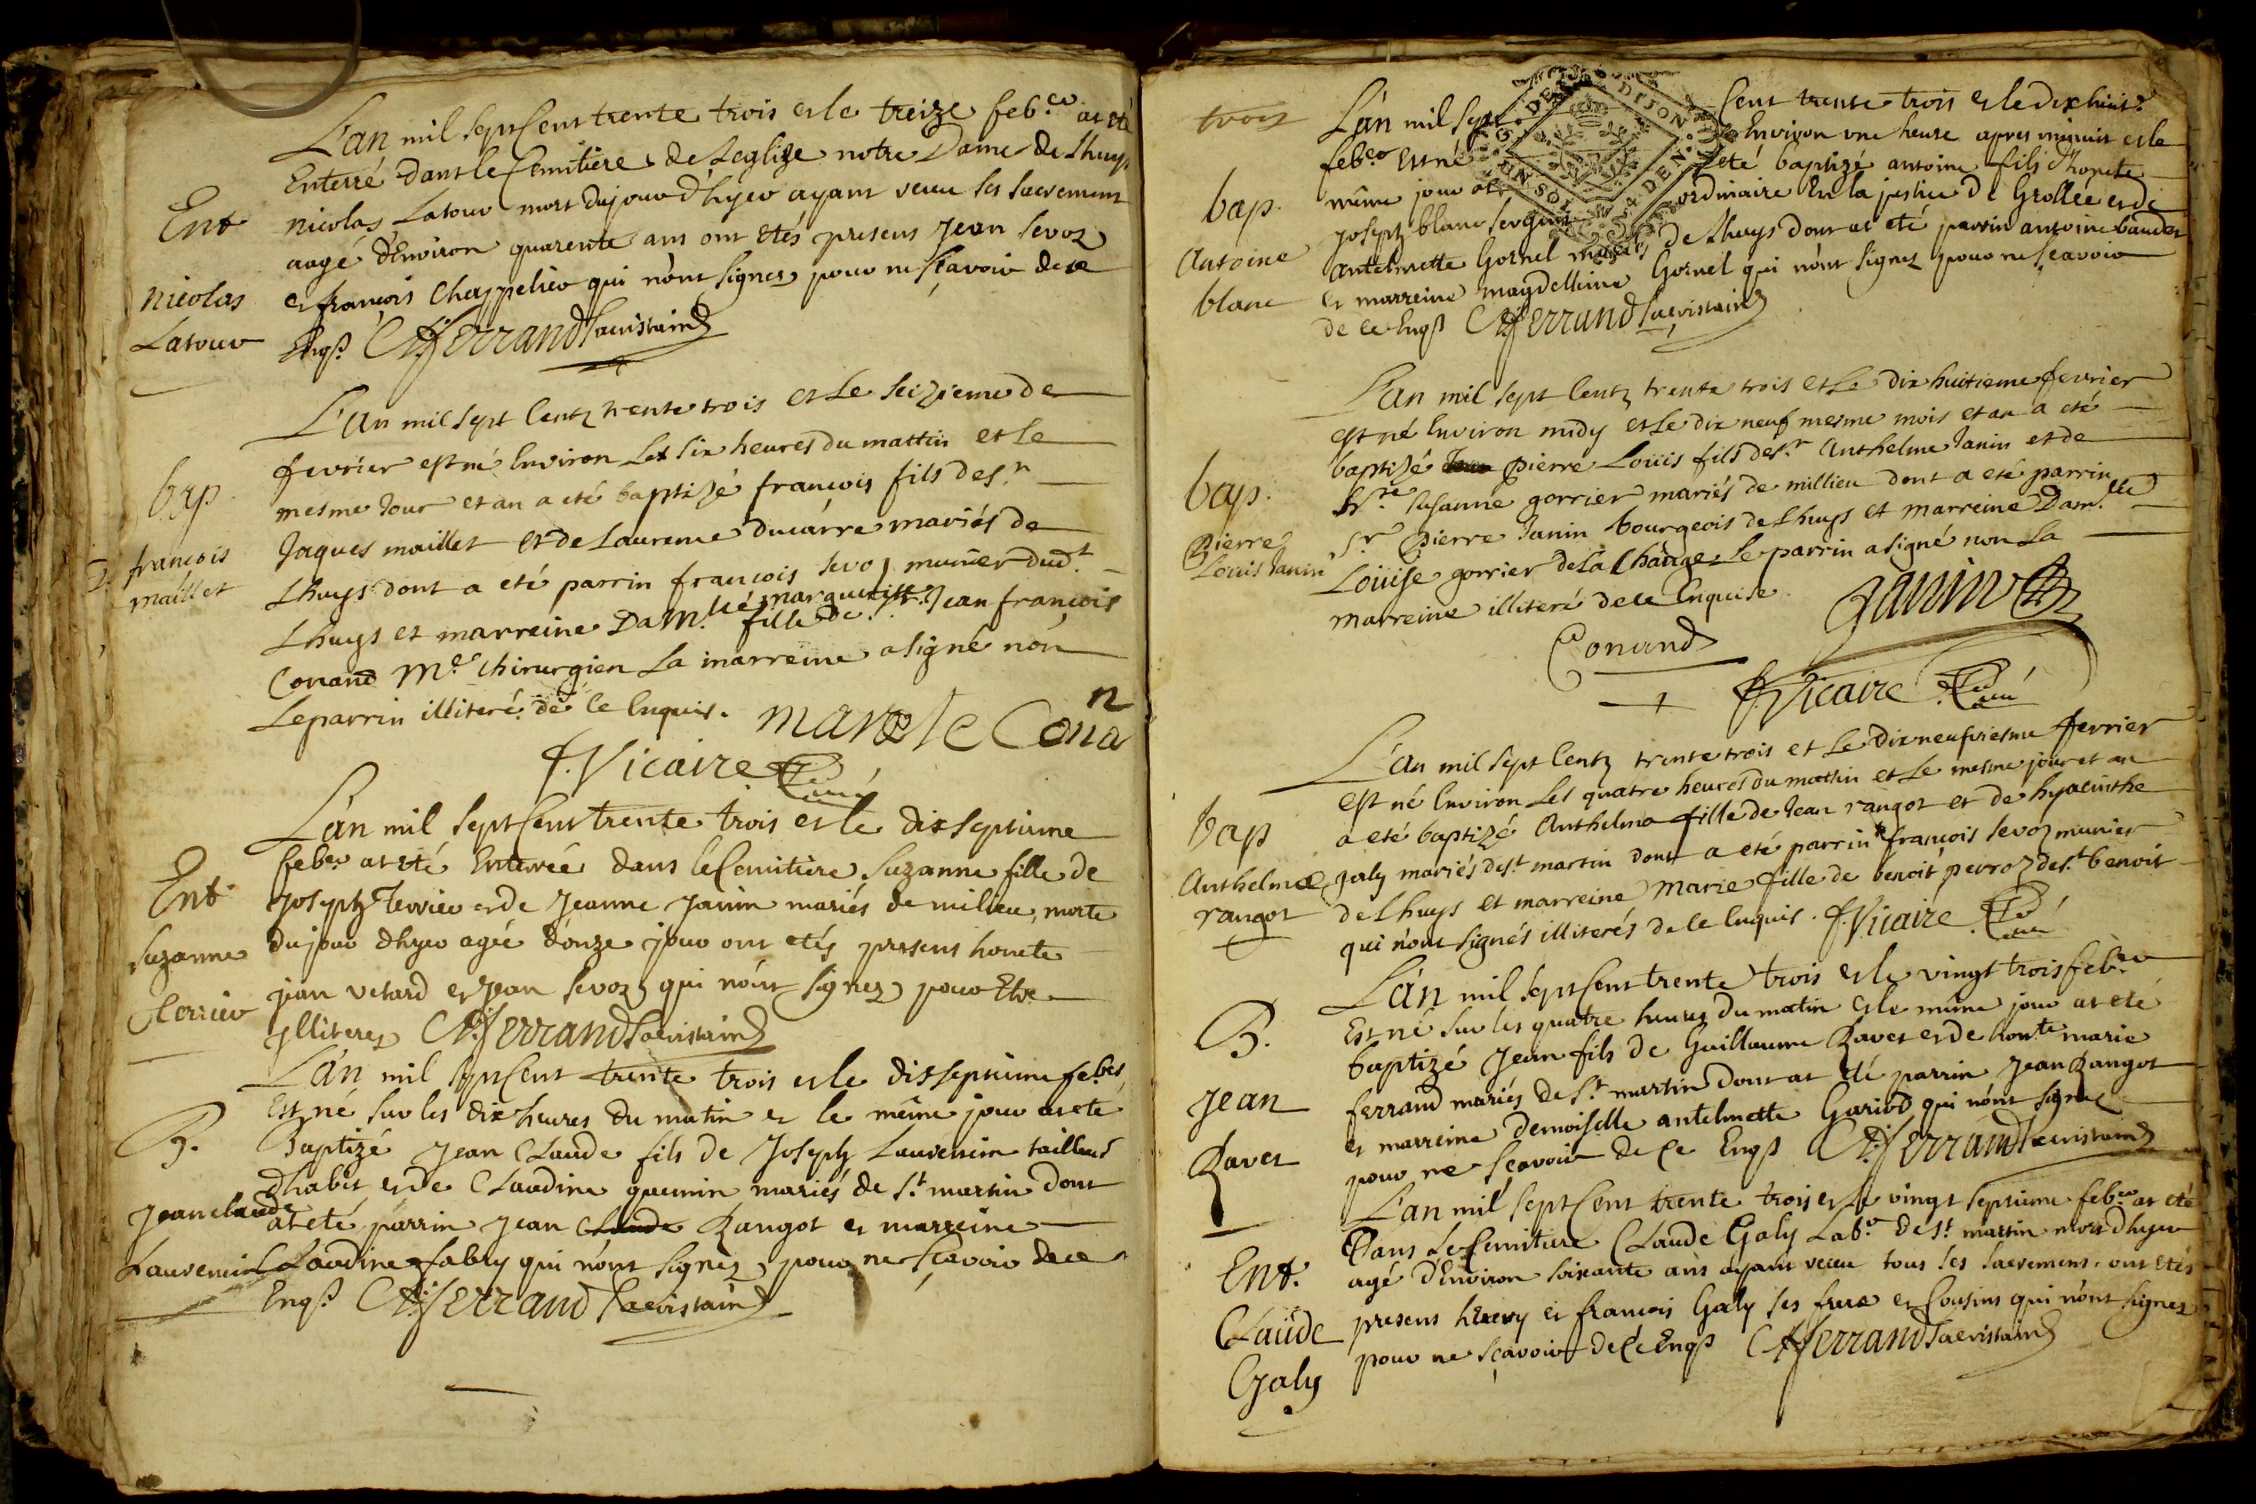 L'an mil sept Cent trente trois et le treize feb.er at eté
Enterré dans le Cemitiere de Leglize notre Dame de Lhuys
Ent
nicolas Latour mort du jour d'hyer ayant receu ses sacrement
aagé d'Environ quarente ans ont etés presens jean sevoz
nicolas
et françois Chappelier qui n'ont signez pour ne sçavoir de ce
Latour
Enqs CHferrand sacristain
L'an mil sept Centz trente trois et Le seizieme de
fevrier est né Environ Les six heures du mattin et Le
bap
mesme Jour et an a eté baptizé françois fils de s.r
Jaques maillet et de Laurence ducarre mariés de
françois
maillet
Lhuys dont a eté parrin françois sevoz munier dud.t
Lhuys et marreine Dam.lle margueritte fille de s.r Jean françois
Conand M.e chirurgien La marreine a signé non
Le parrin illiteré de ce Enquis.
Cona n
f. Vicaire
L'an mil sept Cent trente trois et le dix septieme
feb.er at eté Enterrée dans le Cemitiere Suzanne fille de
Ent
joseph Terrier et de jeanne janin mariés de milieu, morte
Suzanne
du jour d'hyer agée d'onze jour ont etés presens honete
Terrier
jean vetard et jean sevoz qui n'ont signez pour Etre
jlliterez CHferrand sacristain
L'an mil sept Cent trente trois et le dix septieme feb.er
Est né sur les dix heures du matin et le même jour at eté
B.
Baptizé jean Claude fils de joseph Lauvenin tailleur
d'habit et de Claudine guemin mariés de s.t martin dont
jean claude
at eté parrin jean Claude Rangot et marreine
Lauvenin
Claudine fabry qui n'ont signez pour ne sçavoir de ce
Enqs CHferrand sacristain
trois
L'an mil sept Cent trente trois et le dix huit.e
feb.er Est né Environ une heure apres minuit et le
même jour at eté baptizé antoine fils d'honete
bap.
joseph blanc sergent ordinaire En la justice de Grollée et de
Antoine
antelmette Gornel mariés de Lhuys dont at eté parrin antoine baudet
blanc
et marreine magdelleine Gornel qui n'ont signez pour ne sçavoir
de ce Enqs CHferrand sacristain
L'an mil sept Centz trente trois et Le dix huitieme fevrier
est né Environ midy et Le dix neuf mesme mois et an a eté
baptizé Pierre Loüis fils de s.r Anthelme Janin et de
bap.
Susanne gorrier mariés de millieu dont a eté parrin
Pierre
Loüis Janin
S.r Pierre Janin bourgeois de Lhuys et marreine Dam.lle
Loüise gorrier de la Le parrin a signé non La
marreine illiteré de ce Enquise.
Janin
Conand
f. Vicaire
L'an mil sept Centz trente trois et Le dix neufviesme fevrier
est né Environ Les quatre heures du mattin et Le mesme jour et an
bap
a eté baptizé Anthelma fille de Jean rangot et de hyacinthe
Anthelma
galy mariés de s.t martin dont a eté parrin françois sevoz munier
rangot
de Lhuys et marreine Marie fille de benoit perroz de s.t benoit
qui n'ont signés illiterés de ce Enquis. f. Vicaire
L'an mil sept Cent trente trois et le vingt trois feb.er
B.
Est né sur les quatre heures du matin et le même jour at eté
baptizé jean fils de Guillaume Ravet et de hon.te marie
jean
ferrand mariés de s.t martin dont at eté parrin jean Rangot
et marreine demoiselle antelmette Gariod qui n'ont signé
Ravet
pour ne sçavoir de ce Enqs CHferrand sacristain
L'an mil sept Cent trente trois et le vingt septieme feb.er at eté
Dans le Cemitiere Claude Galy Lab.r de s.t martin mort d'hyer
Ent.
agé d'Environ soixante ans ayant receu tous ses sacremens. ont etés
Claude
presens et françois Galy ses frere et Cousins qui n'ont signez
Galy
pour ne sçavoir de ce Enqs CHferrand sacristain